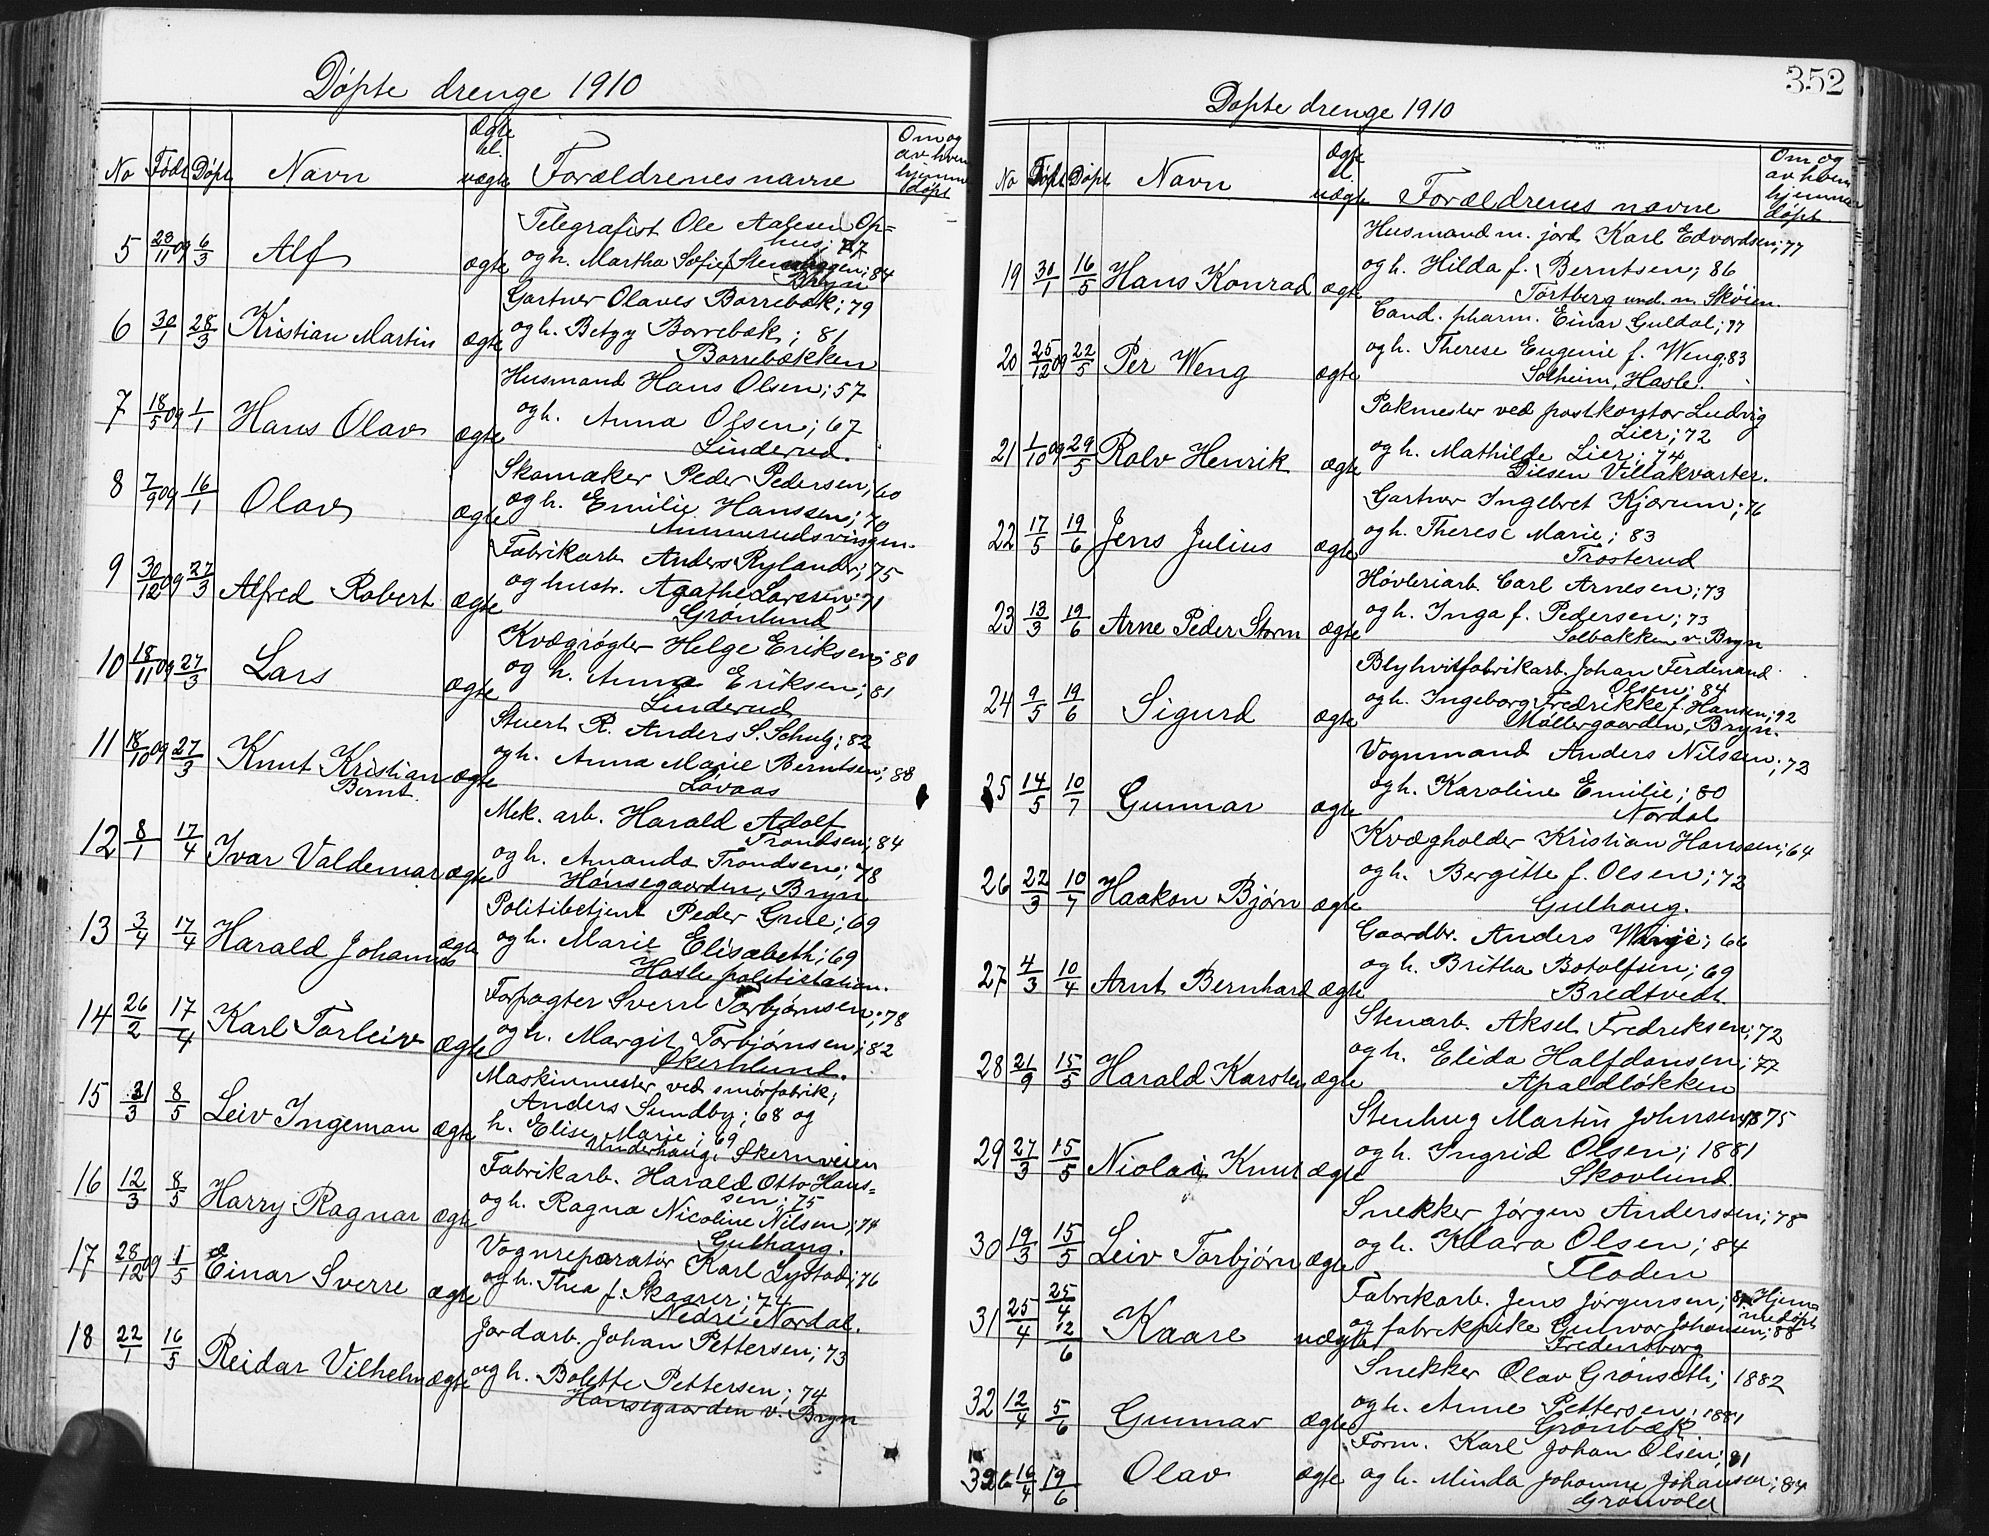 Døpte drenge 1910
No Født Døpt Navn Ægte el. uægte Forældrenes navne Om og av hvem hjemme døpt
Telegrafist Ole Aalesen Op=
hus; 77
5 23/11 09 6/3 Alf ægte og h. Martha Sofie; 84
Bryn
Gartner Olaves Borrebæk; 79
6 30/1 28/3 Kristian Martin ægte og h. Betzy Borrebæk; 81
Borrebækken
Husmand Hans Olsen; 57
7 18/5 09 1/1 Hans Olav ægte og h. Anna Olsen; 67
Linderud.
Skomaker Peder Pedersen; 60
8 7/9 09 16/1 Olav ægte og h. Emilie Hanssen; 70
Ammerudsvingen.
Fabrikarb. Anders Rylander; 75
9 30/12 09 27/3 Alfred Robert ægte og hustr. Agathe Larssen; 71
Grønlund
Kvægrøgter Helge Eriksen; 80
10 18/11 09 27/3 Lars ægte og h. Anna Eriksen; 81
Linderud
Stuert R. Anders S. Schulz; 82
11 18/10 09 27/3 Knut Kristian ægte og h. Anna Marie Berntsen; 88
Bernt. Løvaas
Mek. arb. Harald Adolf
Trondsen; 84
12 8/1 17/4 Ivar Valdemar ægte og h. Amanda Trondsen; 78
Hønsegaarden, Bryn
Politibetjent Peder Grue; 69
13 3/4 17/4 Harald Johannes ægte og h. Marie Elisabeth; 69
Hasle politistation.
Forpagter Sverre Torbjørnsen; 78
14 26/2 17/4 Karl Torleiv ægte og h. Margit Torbjørnsen; 82
Økernlund.
Maskinmester ved smørfabrik;
15 31/3 8/5 Leiv Ingeman ægte Anders Sundby; 68 og
h. Elise Marie; 69
Underhaug, Økernveien
Fabrikarb. Harald Otto Hans=
sen; 75
16 12/3 8/5 Harry Ragnar ægte og h. Ragna Nicoline Nilsen; 74
Gulhaug.
Vognreparatør Karl Lystad; 76
17 28/12 09 1/5 Einar Sverre ægte og h. Thea f. Skaarer; 74
Nedre Nordal.
Jordarb. Johan Pettersen; 73
18 22/1 16/5 Reidar Vilhelm ægte og h. Bolette Pettersen; 74
Hønsegaarden v. Bryn
352
Døpte drenge 1910
No Født Døpt Navn Ægte el. uægte Forældrenes navne Om og av hvem hjemme døpt
Husmand m. jord Karl Edvardsen; 77
19 30/1 16/5 Hans Konrad ægte og h. Hilda f. Berntsen; 86
Tortberg und. n. Skøien.
Cand. pharm. Einar Guldal; 77
20 25/12 09 22/5 Per Weng ægte og h. Therese Eugenie f. Weng; 83
Solheim, Hasle.
Pakmester ved postkontor Ludvig
Lier; 72
21 1/10 09 29/5 Rolv Henrik ægte og h. Mathilde Lier; 74
Diesen Villakvarter.
Gartner Ingebret Kjørum; 76
22 17/5 19/6 Jens Julius ægte og h. Therese Marie; 83
Trosterud
Høvleriarb. Carl Arnesen; 73
23 13/3 19/6 Arne Peder Storm ægte og h. Inga f. Pedersen; 73
Solbakken v. Bryn
Blyhvitfabrikarb. Johan Ferdinand
Olsen; 84
24 9/5 19/6 Sigurd ægte og h. Ingeborg Fredrikke f. Hansen; 92
Møllergaarden, Bryn.
Vognmand Anders Nilssen; 73
25 14/5 10/7 Gunnar ægte og h. Karoline Emilie; 80
Nordal
Kvægholder Kristian Hanssen; 64
26 22/3 10/7 Haakon Bjørn ægte og h. Bergitte f. Olsen; 72
Gulhaug.
Gaardbr. Anders Winje; 66
27 4/3 10/4 Arnt Bernhard ægte og h. Britha Botolfsen; 69
Bredtvedt
Stenarb. Aksel Fredriksen; 72
28 21/9 15/5 Harald Karsten ægte og h. Elida Halfdansen; 77
Apaldløkken
Stenhug Martin Johnsen; 1875
29 27/3 15/5 Niolai Knut ægte og h. Ingrid Olsen; 1881
Skovlund.
Snekker Jørgen Anderssen; 78
30 19/3 15/5 Leiv Torbjørn ægte og h. Klara Olsen; 84
Floden
Fabrikarb. Jens Jørgensen; Hjemmedøpt
31 25/4 25/4 12/6 Kaare uægte og fabrikpike Gunvor Johansen; 88
Fredensborg
Snekker Olav Grønsetli; 1882
32 12/4 5/6 Gunnar ægte og h. Anne Pettersen; 1881
Grønbæk
Form. Karl Johan Olsen; 81
16/4 19/6 Olav ægte og h. Minda Johanne Johansen; 84
Grønvold